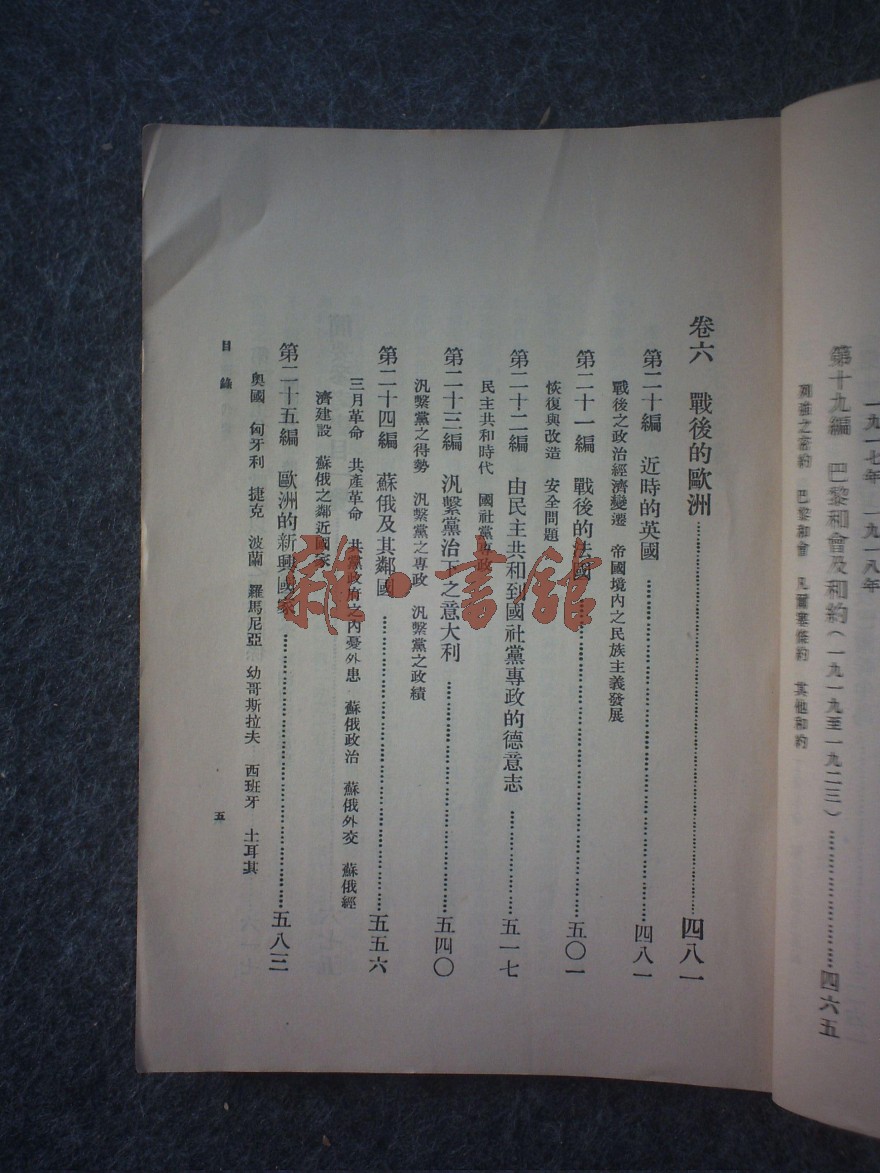 一九一七年——一九一八年
第十九編　巴黎和會及和約（一九一九至一九二三）……四六五
巴黎和會　其他和約
卷六　戰後的歐洲……四八一
第二十編　近時的英國……四八一
戰後之政治經濟變遷　帝國境內之民族主義發展
第二十一編　戰後的法國……五〇一
恢復與改造　安全問題
第二十二編　由民主共和到國社黨專政的德意志……五一七
民主共和時代　國社黨專政
第二十三編　汎繫黨治下之意大利……五四〇
汎繫黨之得勢　汎繫黨之專政　汎繫黨之政績
第二十四編　蘇俄及其鄰國……五五六
三月革命　共產革命　共黨政府之內憂外患　蘇俄政治　蘇俄外交　蘇俄經
濟建設　蘇俄之鄰近國家
第二十五編　歐洲的新興國家……五八三
奧國　匈牙利　捷克　波蘭　羅馬尼亞　幼哥斯拉夫　西班牙　土耳其
目錄
五
雜·書館